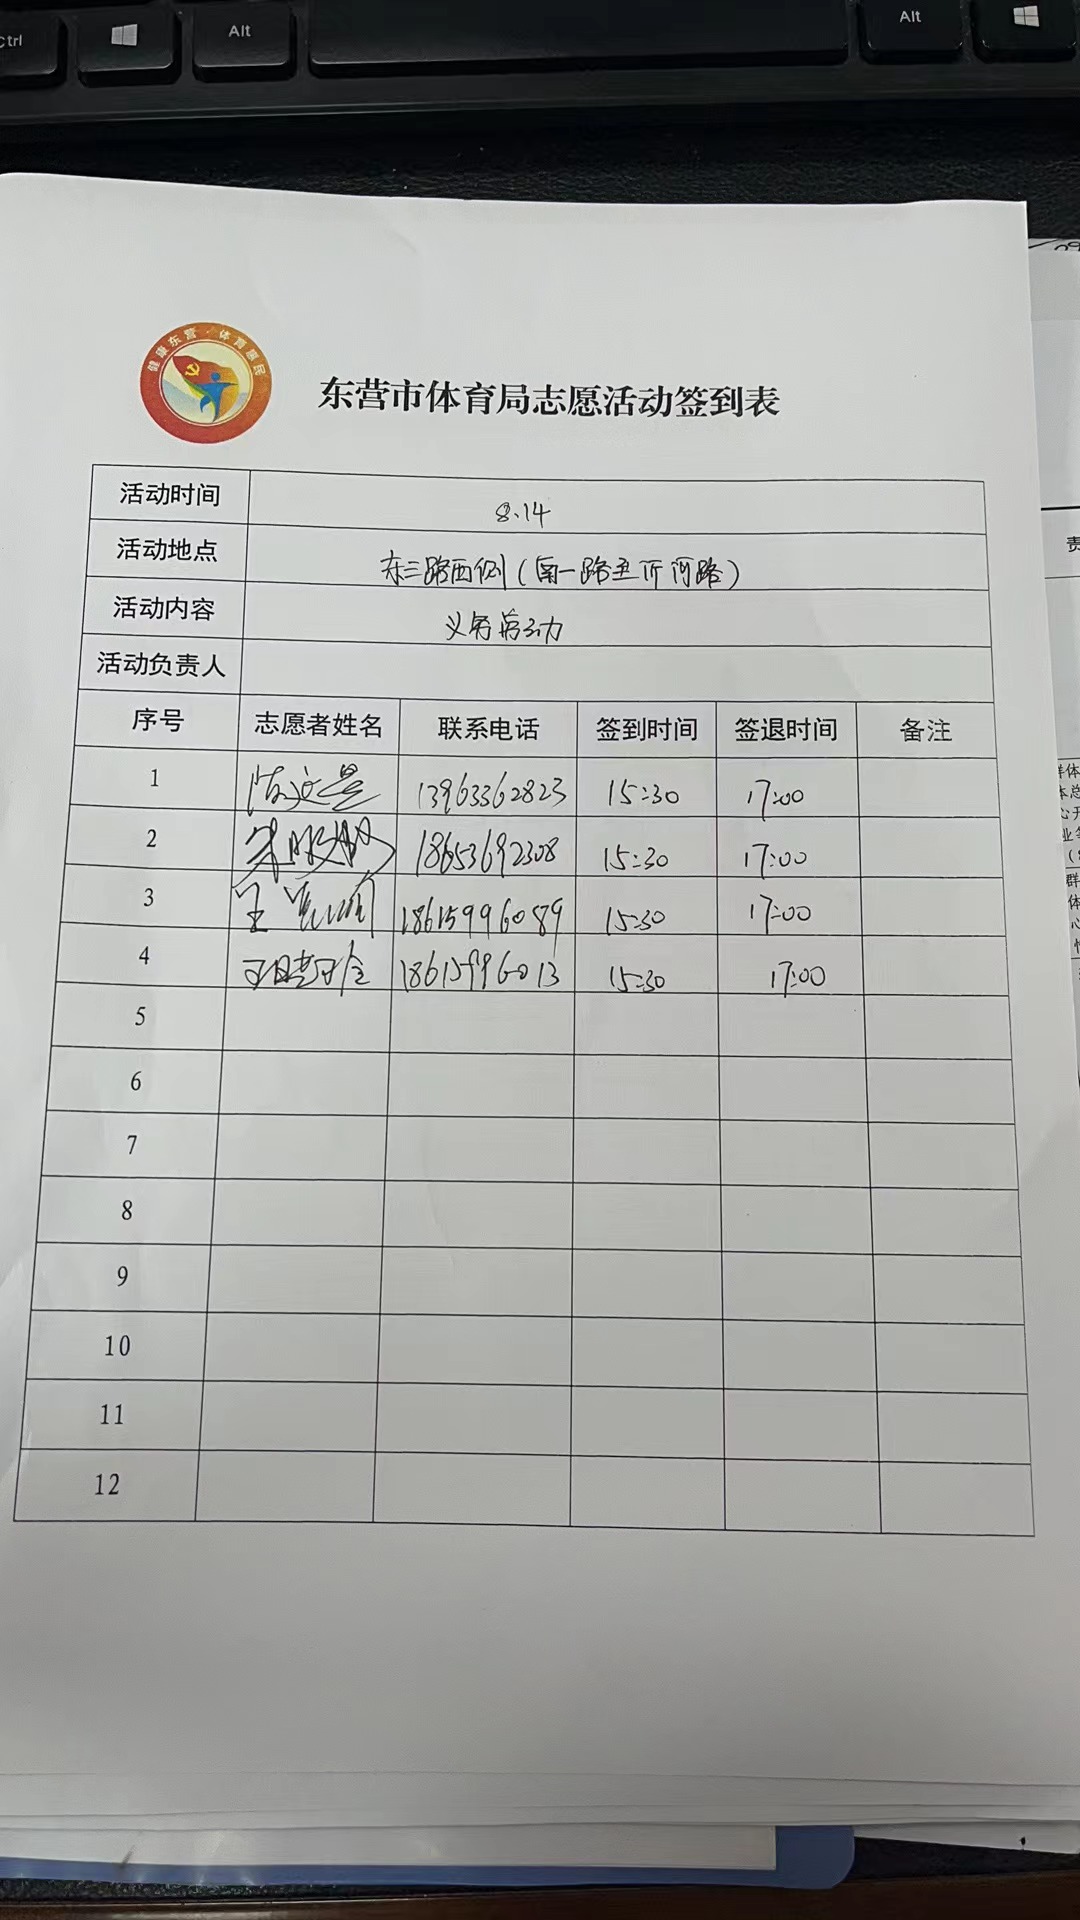 Ctrl
Alt
Alt
健康东营·体育惠民
东营市体育局志愿活动签到表
活动时间 8.14
活动地点 东三路西侧(南一路至沂河路)
活动内容 义务劳动
活动负责人
序号 志愿者姓名 联系电话 签到时间 签退时间 备注
1 13963362823 15:30 17:00
2 18653692308 15:30 17:00
3 王 18615996089 15:30 17:00
4 18615996013 15:30 17:00
5
6
7
8
9
10
11
12